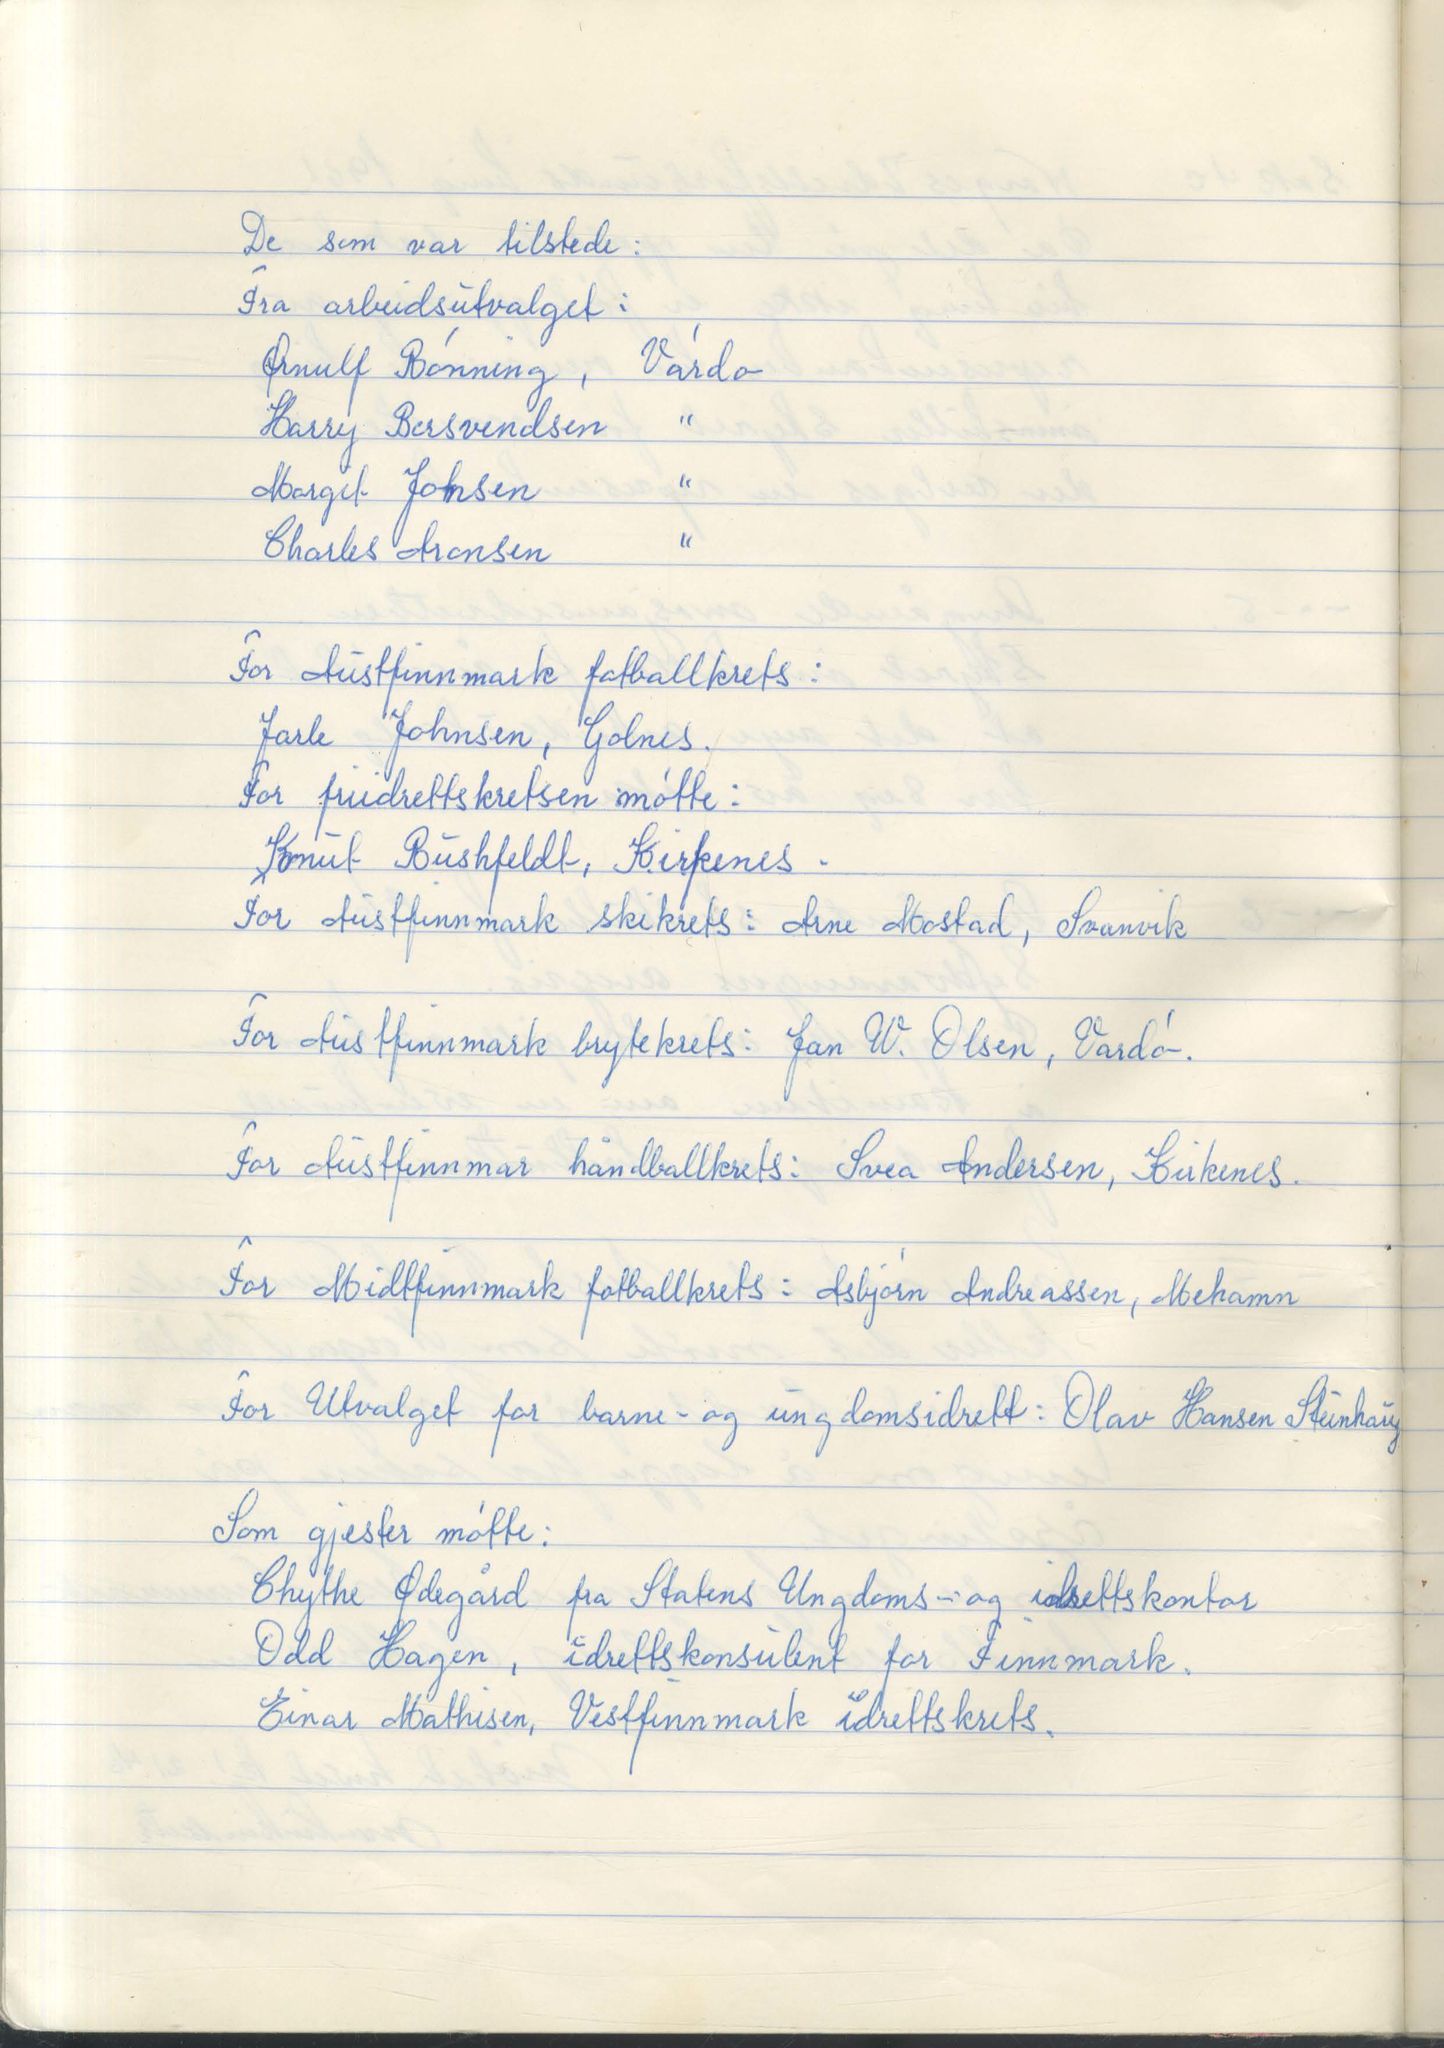 De som var tilstede:
Fra arbeidsutvalget:
Ørnulf Bønning, Vardø
Harry Bersvendsen "
Marget Johsen "
Charles Aronsen "
For Austfinnmark fotballkrets:
Jarle Johnsen, Golnes.
For friidrettskretsen møtte:
Knut Bushfeldt, Kirkenes.
For Austfinnmark skikrets: Arne Mostad, Svanvik
For Austfinnmark brytekrets: Jan W. Olsen, Vardø.
For Austfinnmar håndballkrets: Svea Andersen, Kirkenes.
For Midtfinnmark fotballkrets: Asbjørn Andreassen, Mehamn
For Utvalget for barne- og ungdomsidrett: Olav Hansen Steinhaug
Som gjester møtte:
Chythe Ødegård fra Statens Ungdoms- og idrettskontor
Odd Hagen, idrettskonsulent for Finnmark.
Einar Mathisen, Vestfinnmark idrettskrets.